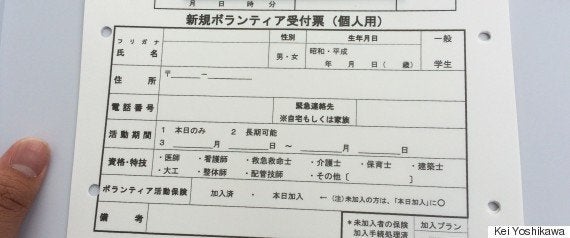 月 日 時 分
新規ボランティア受付票（個人用）
フリガナ 性別 生年月日 一般
氏 名 男・女 昭和・平成
年 月 日（ 歳） 学生
住 所 〒 －
電話番号 緊急連絡先
※自宅もしくは家族
活動期間 1 本日のみ 2 長期可能
3 月 日 ～ 月 日
資格・特技 ・医師 ・看護師 ・救急救命士 ・介護士 ・保育士 ・建築士
・大工 ・整体師 ・配管技師 ・その他〔 〕
ボランティア活動保険 加入済 ・ 本日加入 ←（注）未加入の方は、「本日加入」に〇
備 考 *未加入者の保険 加入プラン
加入手続処理済
Kei Yoshikawa